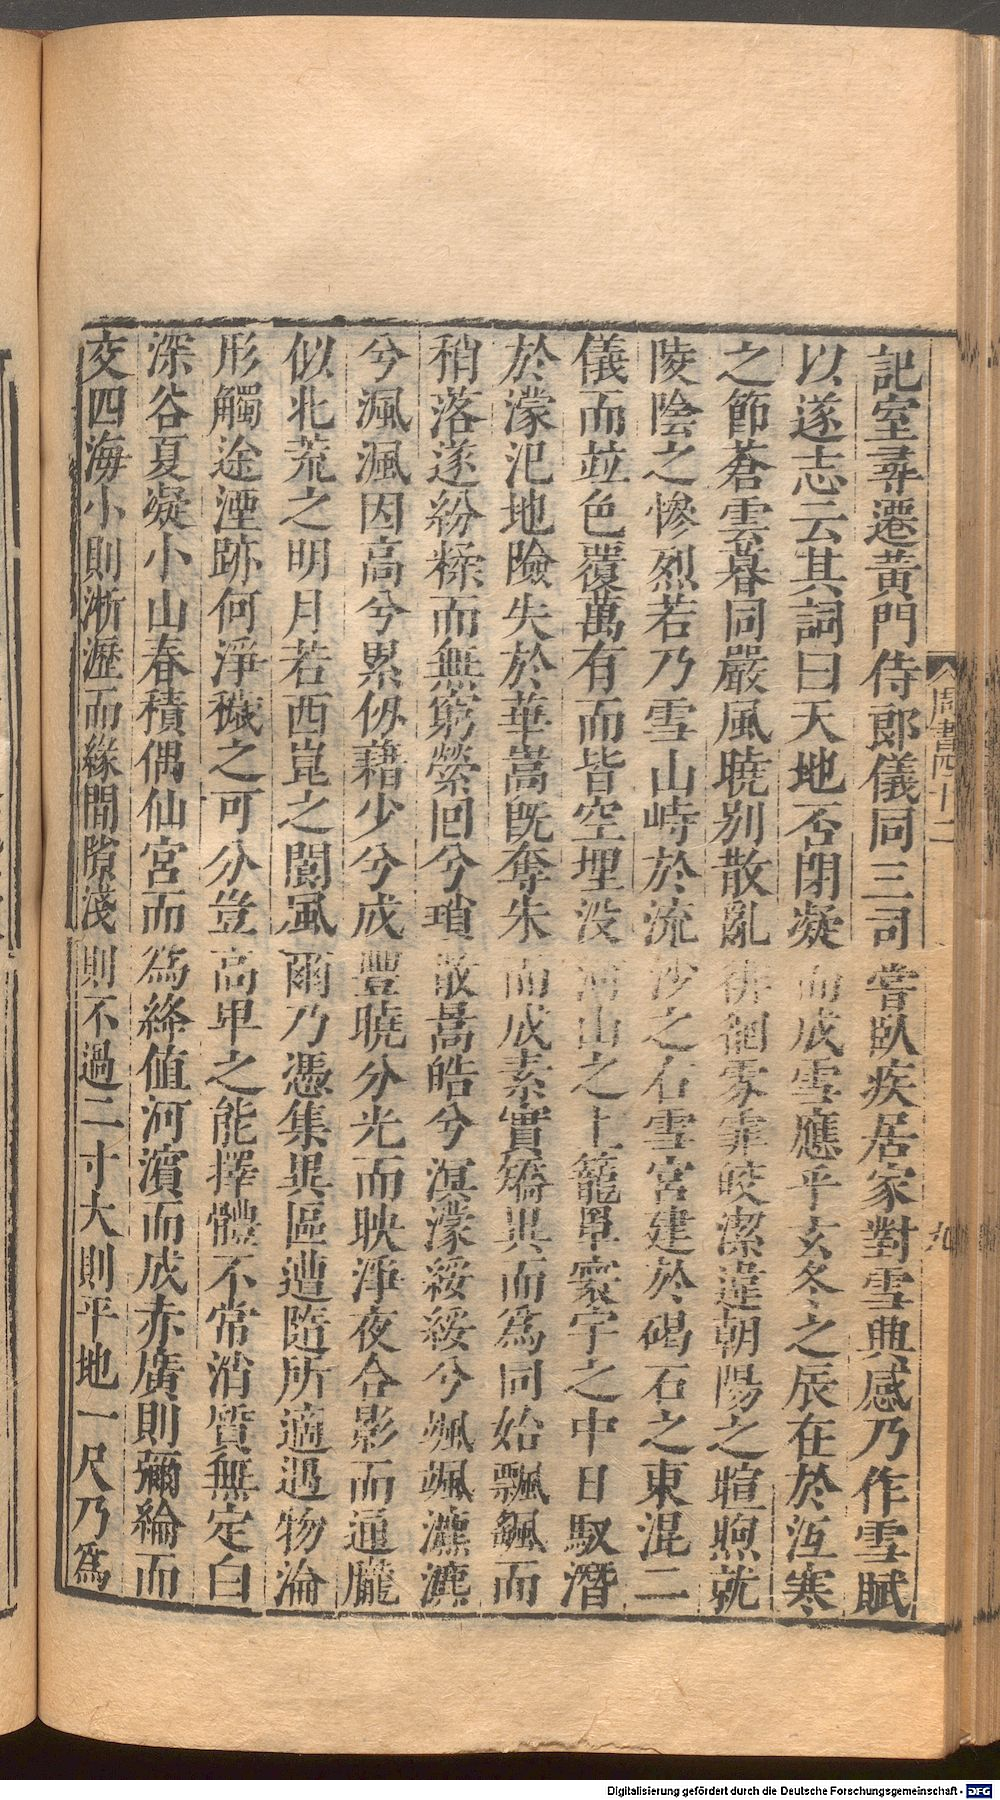 記室尋遷黃門侍郎儀同三司嘗臥疾居家對雪典感乃作雪賦
以遂志云其詞曰天地否閉凝而成雪應乎玄冬之辰在於沍寒
之節蒼雲暮同嚴風曉别散亂徘徊雰霏皎潔違朝陽之暄煦就
陵陰之慘烈若乃雪山峙於流沙之右雪宮建於碣石之東混二
儀而竝色覆萬有而皆空埋没河山之上籠罩寰宇之中日馭潛
於濛汜地險失於華嵩旣奪朱而成素實矯異而爲同始飄颻而
稍落遂紛糅而無窮縈回兮瑣散暠皓兮溟濛綏綏兮颯颯瀌瀌
兮渢渢因高兮累仞藉少兮成豐曉分光而映淨夜合影而通朧
似北荒之明月若西崑之閬風爾乃憑集異區遭隨所適遇物淪
形觸途湮跡何淨穢之可分豈高卑之能擇體不常消質無定白
深谷夏凝小山春積偶仙宮而爲絳値河濱而成赤廣則彌綸而
交四海小則淅瀝而緣間隙淺則不過二寸大則平地一尺乃爲
周書四十二
九
Digitalisierung gefördert durch die Deutsche Forschungsgemeinschaft - DFG